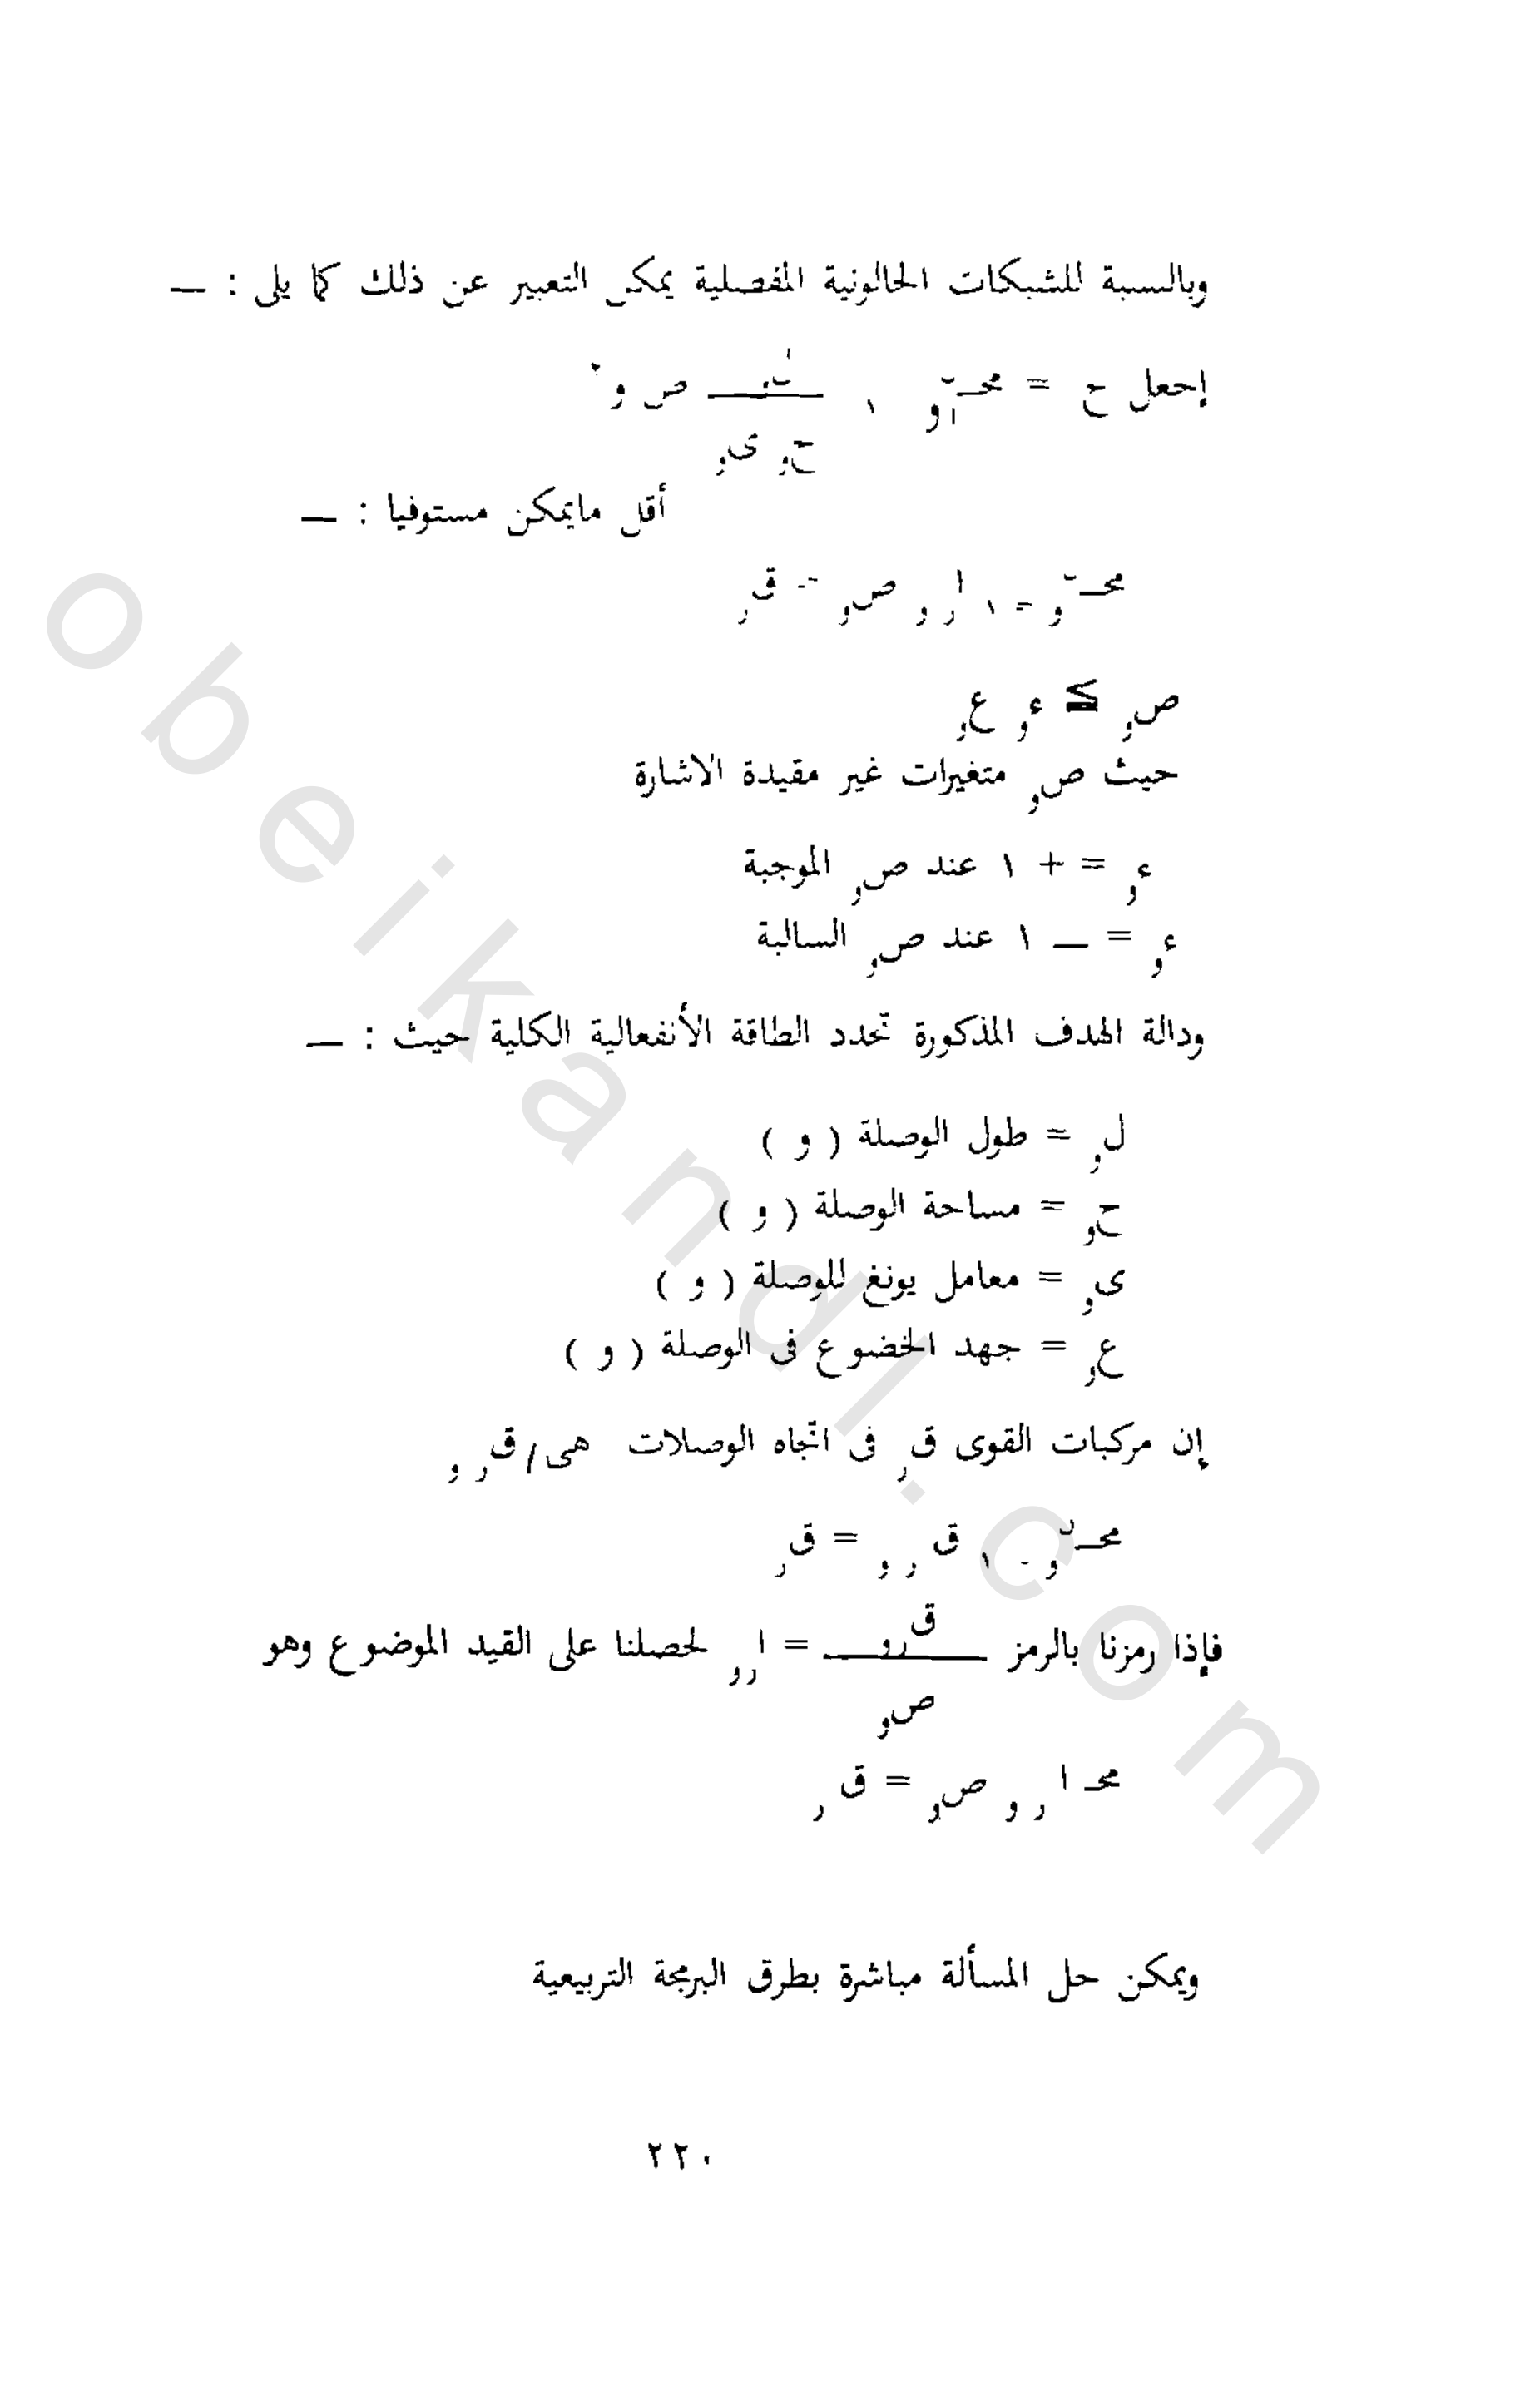 وبالنسبة للشبكات الجمالونية المفصلية يمكن التعبير عن ذلك كما يلى : —
إجعل ح = محـ و ١ ل و ص و ٢
ح و ى و
أقل مايمكن مستوفيا : —
محـ ن و = ١ ا ر و ص و = ق ر
ص و ≤ ء و ع و
حيث ص و متغيرات غير مقيدة الاشارة
ء و = + ١ عند ص و الموجبة
ء و = — ١ عند ص و السالبة
ودالة الهدف المذكورة تحدد الطاقة الأنفعالية الكلية حيث : —
ل و = طول الوصلة ( و )
ح و = مساحة الوصلة ( و )
ى و = معامل يونغ للوصلة ( و )
ع و = جهد الخضوع فى الوصلة ( و )
إن مركبات القوى ق ر فى اتجاه الوصلات هى / ق ر و
محـ ن و = ١ ق ر و = ق ر
فإذا رمزنا بالرمز ق ر و = ا ر و لحصلنا على القيد الموضوع وهو
ص و
محـ ا ر و ص و = ق ر
ويمكن حل المسألة مباشرة بطرق البرمجة التربيعية
٢٢٠
obeikandl.com